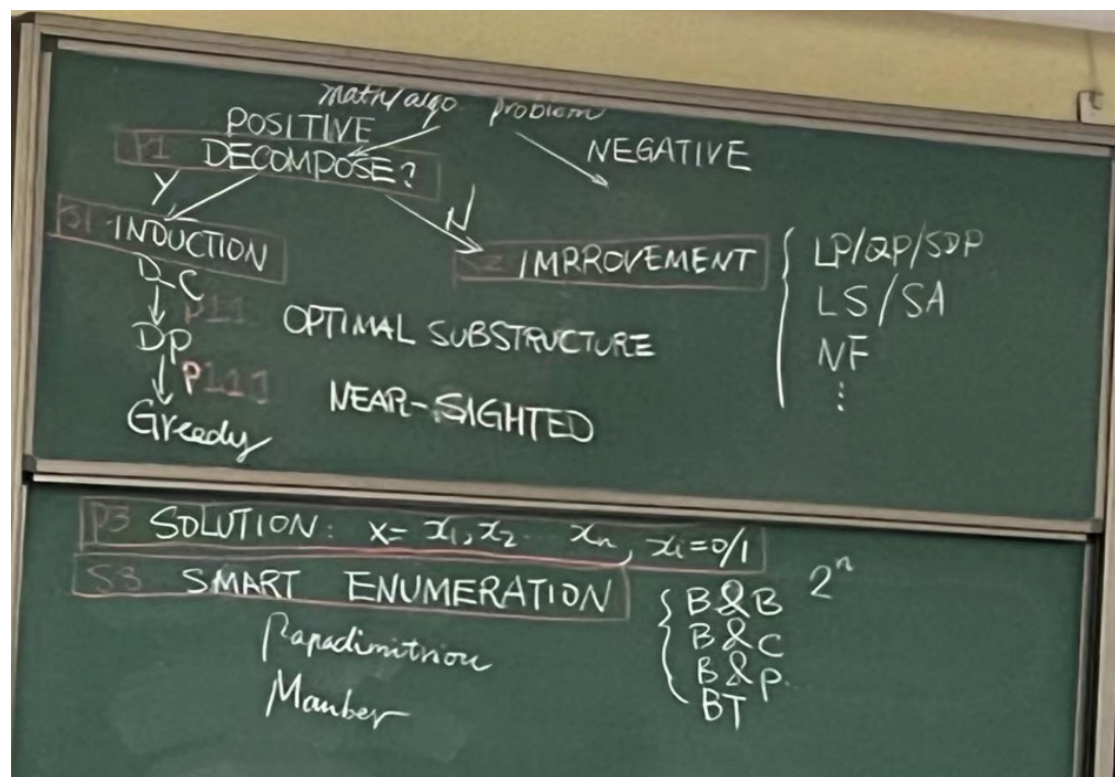 math/algo problem
POSITIVE
NEGATIVE
P1 DECOMPOSE?
Y
N
S1 INDUCTION
S2 IMPRROVEMENT
LP/QP/SDP
LS/SA
NF
⋮
D-C
P11 OPTIMAL SUBSTRUCTURE
DP
P111 NEAR-SIGHTED
Greedy
P3 SOLUTION: X= x1,x2 ... xn, xi=0/1
S3 SMART ENUMERATION
B&B 2^n
B&C
B&P
BT
Papadimitriou
Manber